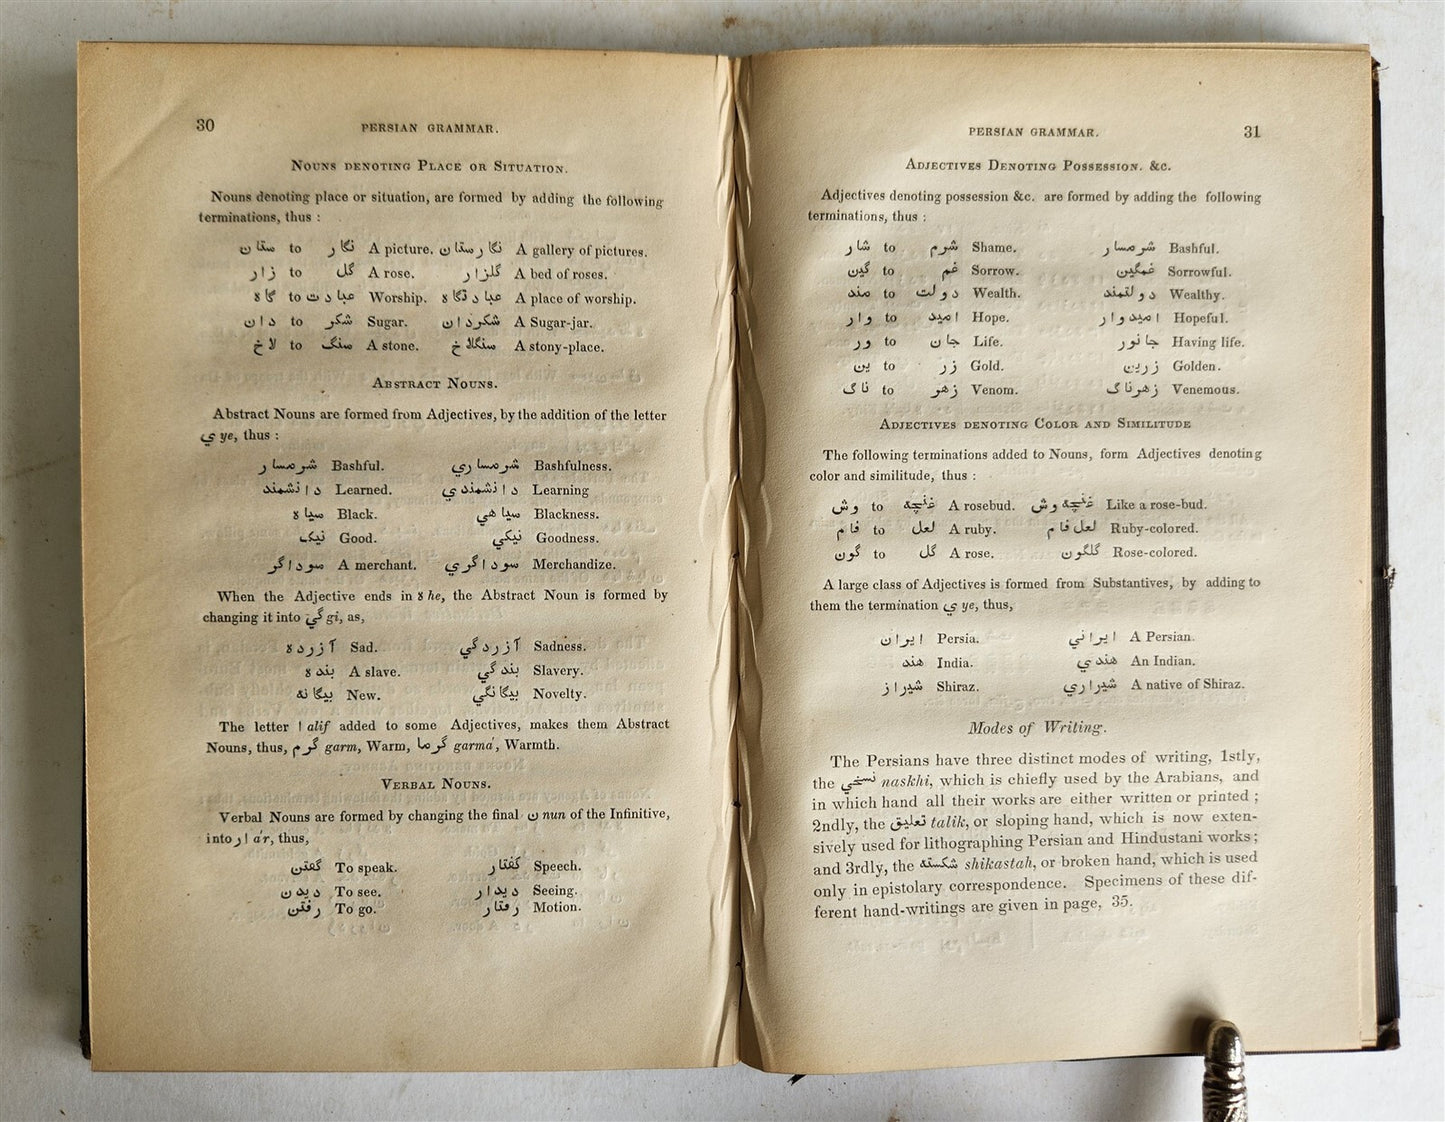 30
PERSIAN GRAMMAR.
NOUNS DENOTING PLACE OR SITUATION.
Nouns denoting place or situation, are formed by adding the following
terminations, thus :
ستان to نگار A picture. نگارستان A gallery of pictures.
زار to گل A rose. گلزار A bed of roses.
گاه to عبادت Worship. عبادتگاه A place of worship.
دان to شکر Sugar. شکردان A Sugar-jar.
لاخ to سنگ A stone. سنگلاخ A stony-place.
ABSTRACT NOUNS.
Abstract Nouns are formed from Adjectives, by the addition of the letter
ي ye, thus :
شرمسار Bashful. شرمساري Bashfulness.
دانشمند Learned. دانشمندي Learning
سياه Black. سياهي Blackness.
نيک Good. نيکي Goodness.
سوداگر A merchant. سوداگري Merchandize.
When the Adjective ends in ه he, the Abstract Noun is formed by
changing it into گي gi, as,
آزرده Sad. آزردگي Sadness.
بنده A slave. بندگي Slavery.
بيگانه New. بيگانگي Novelty.
The letter ا alif added to some Adjectives, makes them Abstract
Nouns, thus, گرم garm, Warm, گرما garmá, Warmth.
VERBAL NOUNS.
Verbal Nouns are formed by changing the final ن nun of the Infinitive,
into ار ár, thus,
گفتن To speak. گفتار Speech.
ديدن To see. ديدار Seeing.
رفتن To go. رفتار Motion.
PERSIAN GRAMMAR.
31
ADJECTIVES DENOTING POSSESSION. &C.
Adjectives denoting possession &c. are formed by adding the following
terminations, thus :
شار to شرم Shame. شرمسار Bashful.
گين to غم Sorrow. غمگين Sorrowful.
مند to دولت Wealth. دولتمند Wealthy.
وار to اميد Hope. اميدوار Hopeful.
ور to جان Life. جانور Having life.
ين to زر Gold. زرين Golden.
ناگ to زهر Venom. زهرناگ Venemous.
ADJECTIVES DENOTING COLOR AND SIMILITUDE
The following terminations added to Nouns, form Adjectives denoting
color and similitude, thus :
وش to غنچة A rosebud. غنچة وش Like a rose-bud.
فام to لعل A ruby. لعل فام Ruby-colored.
گون to گل A rose. گلگون Rose-colored.
A large class of Adjectives is formed from Substantives, by adding to
them the termination ي ye, thus,
ايران Persia. ايراني A Persian.
هند India. هندي An Indian.
شيراز Shiraz. شيرازي A native of Shiraz.
Modes of Writing.
The Persians have three distinct modes of writing, 1stly,
the نسخي naskhi, which is chiefly used by the Arabians, and
in which hand all their works are either written or printed ;
2ndly, the تعليق talik, or sloping hand, which is now exten-
sively used for lithographing Persian and Hindustani works ;
and 3rdly, the شکسته shikastah, or broken hand, which is used
only in epistolary correspondence. Specimens of these dif-
ferent hand-writings are given in page, 35.